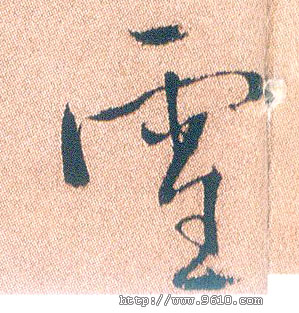 雪
http://www.9610.com